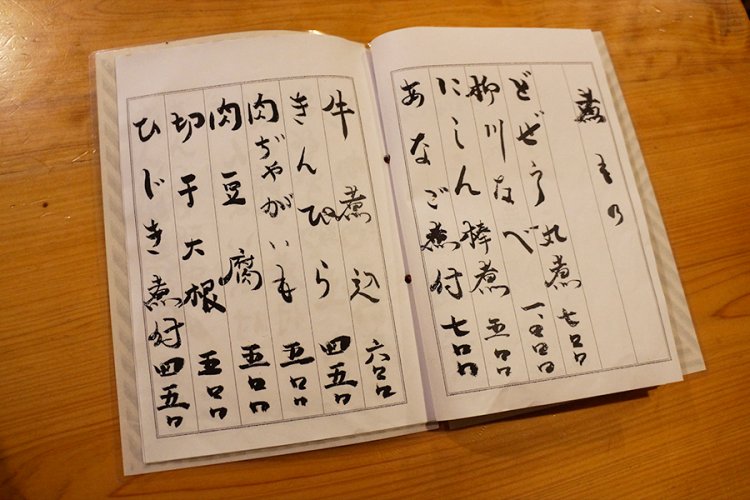 煮もの
どぜう丸煮 七〇〇
柳川なべ 一、〇〇〇
にしん棒煮 五〇〇
あなご煮付 七〇〇
牛煮込 六〇〇
きんぴら 四五〇
肉ぢやがいも 五〇〇
肉豆腐 五〇〇
切干大根 五〇〇
ひじき煮付 四五〇